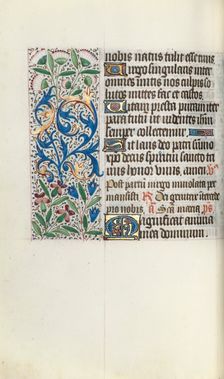 nobis natus tulit esse tuus
Virgo singularis inter
omnes mitis nos culpis so
lutos mites fac et castos.
Vitam presta puram iter
para tutum ut videntes ihm
semper colletemur.
Sit laus deo patri summo
xpo decus spiritui sancto
tribus honor unus. amen. v
Post partum virgo inviolata per
mansisti. R Dei genitrix intercede
pro nobis. a Sca maria. ps
Magnificat anima
mea dominum.